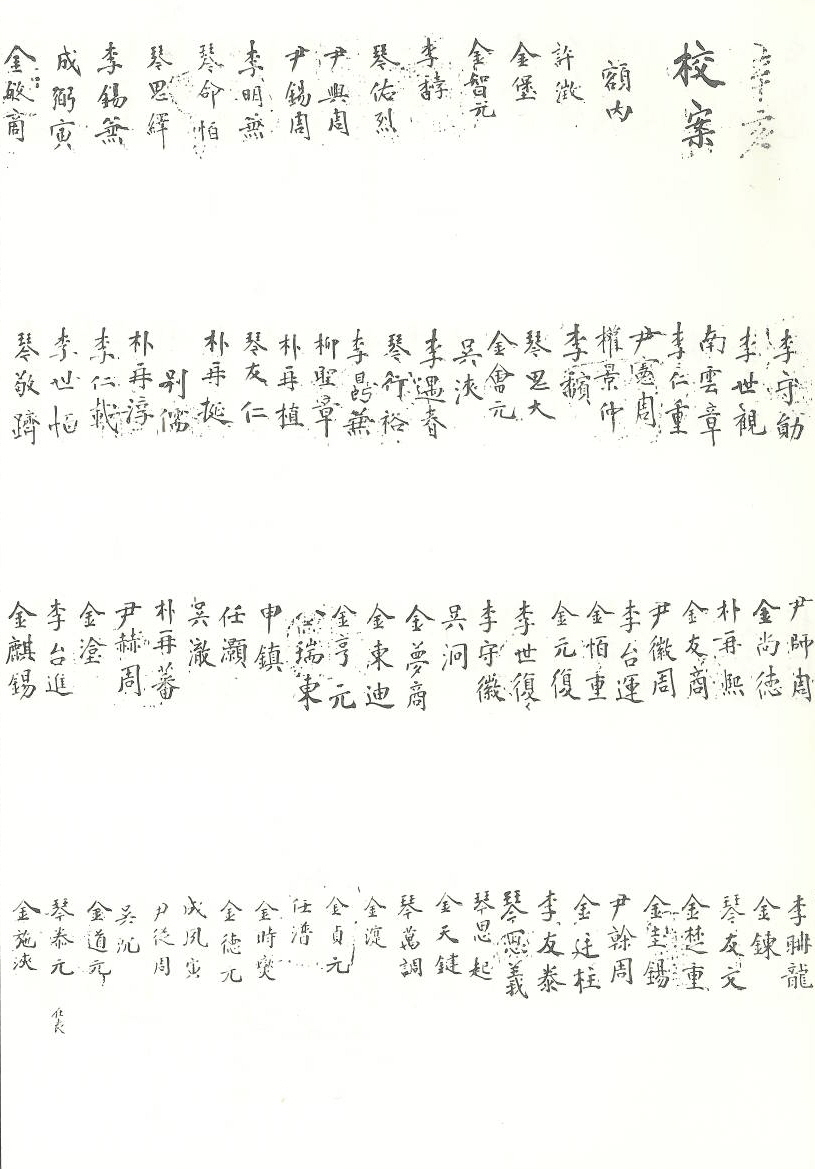 辛亥
校案
額內
許澂
金堡
金智元
李𩡣
琴佑烈
尹興周
尹錫周
李明蕪
琴命怕
琴思繹
李錫蕪
成弼寅
金敏商
李守勛
李世觀
南雲章
李仁重
尹憲周
權景仲
李䫴
琴思大
金會元
吳浹
李遇春
琴行裕
李昂蕪
柳聖章
朴再植
琴友仁
朴再挻
別儒
朴再淳
李仁載
李世恒
琴敬躋
尹師周
金尚德
朴再熙
金友商
尹徽周
李台運
金怕重
金元復
李世復
李守徽
吳泂
金夢商
金東迪
金亨元
瑞東
申鎮
任灝
吳澈
朴再蕃
尹赫周
金澮
李台進
金麒錫
李聃龍
金鍊
琴友文
金楚重
金圭錫
尹榦周
金廷柱
李友泰
琴思義
琴思起
金天鍵
琴萬調
金濵
金貞元
任濟
金時燮
金德元
成夙寅
尹從周
吳沉
金道元
琴泰元
金施浹